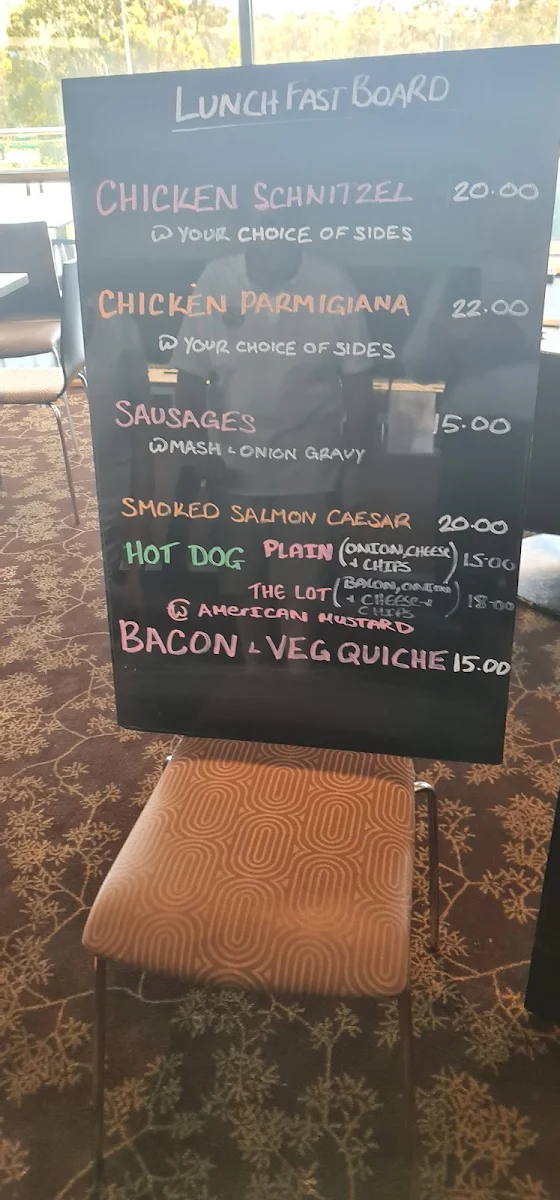 LUNCH FAST BOARD
CHICKEN SCHNITZEL 20.00
W YOUR CHOICE OF SIDES
CHICKEN PARMIGIANA 22.00
W YOUR CHOICE OF SIDES
SAUSAGES 15.00
W MASH & ONION GRAVY
SMOKED SALMON CAESAR 20.00
HOT DOG PLAIN (ONION, CHEESE + CHIPS) 15.00
THE LOT (BACON, ONION + CHEESE + CHIPS) 18.00
W AMERICAN MUSTARD
BACON & VEG QUICHE 15.00